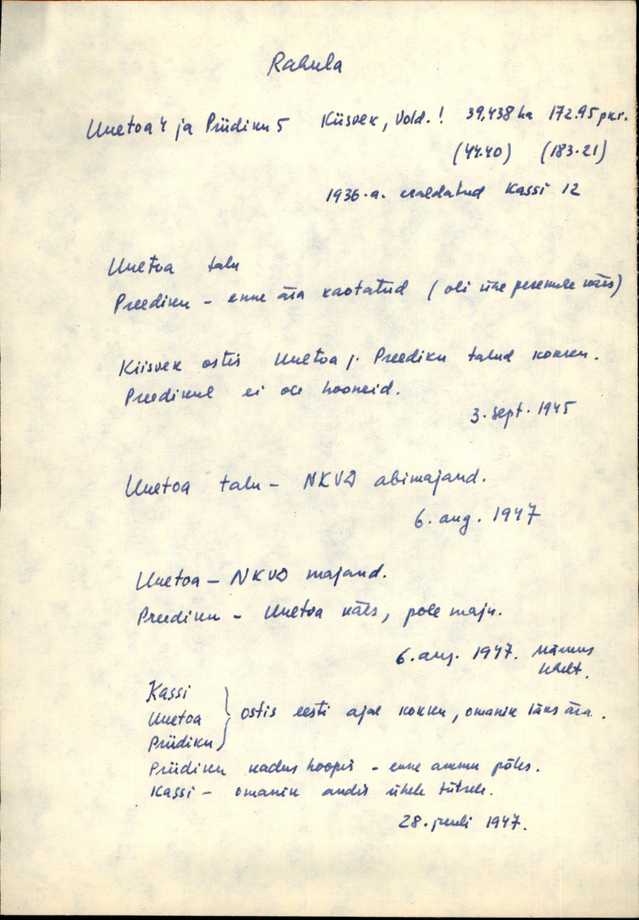 Rahula
Uuetoa 4 ja Priidiku 5 Kiisvek, Vold.! 39,438 ha 172.95 pkr.
(44.40) (183.21)
1936.a. eraldatud Kassi 12
Uuetoa talu
Preediku - enne ära kaotatud (oli ühe peremehe käes)
Kiisvek ostis Uuetoa j. Preediku talud kokku.
Preedikul ei ole hooneid.
3. sept. 1945
Uuetoa talu - NKVD abimajand.
6. aug. 1947
Uuetoa - NKVD majand.
Preediku - Uuetoa käes, pole maju.
6. aug. 1947. Märkus lehelt.
Kassi
Uuetoa
Priidiku
ostis eesti ajal kokku, omanik läks ära.
Priidiku kadus hoopis - enne ammu põles.
Kassi - omanik andis ühele tütrele.
28. juuli 1947.